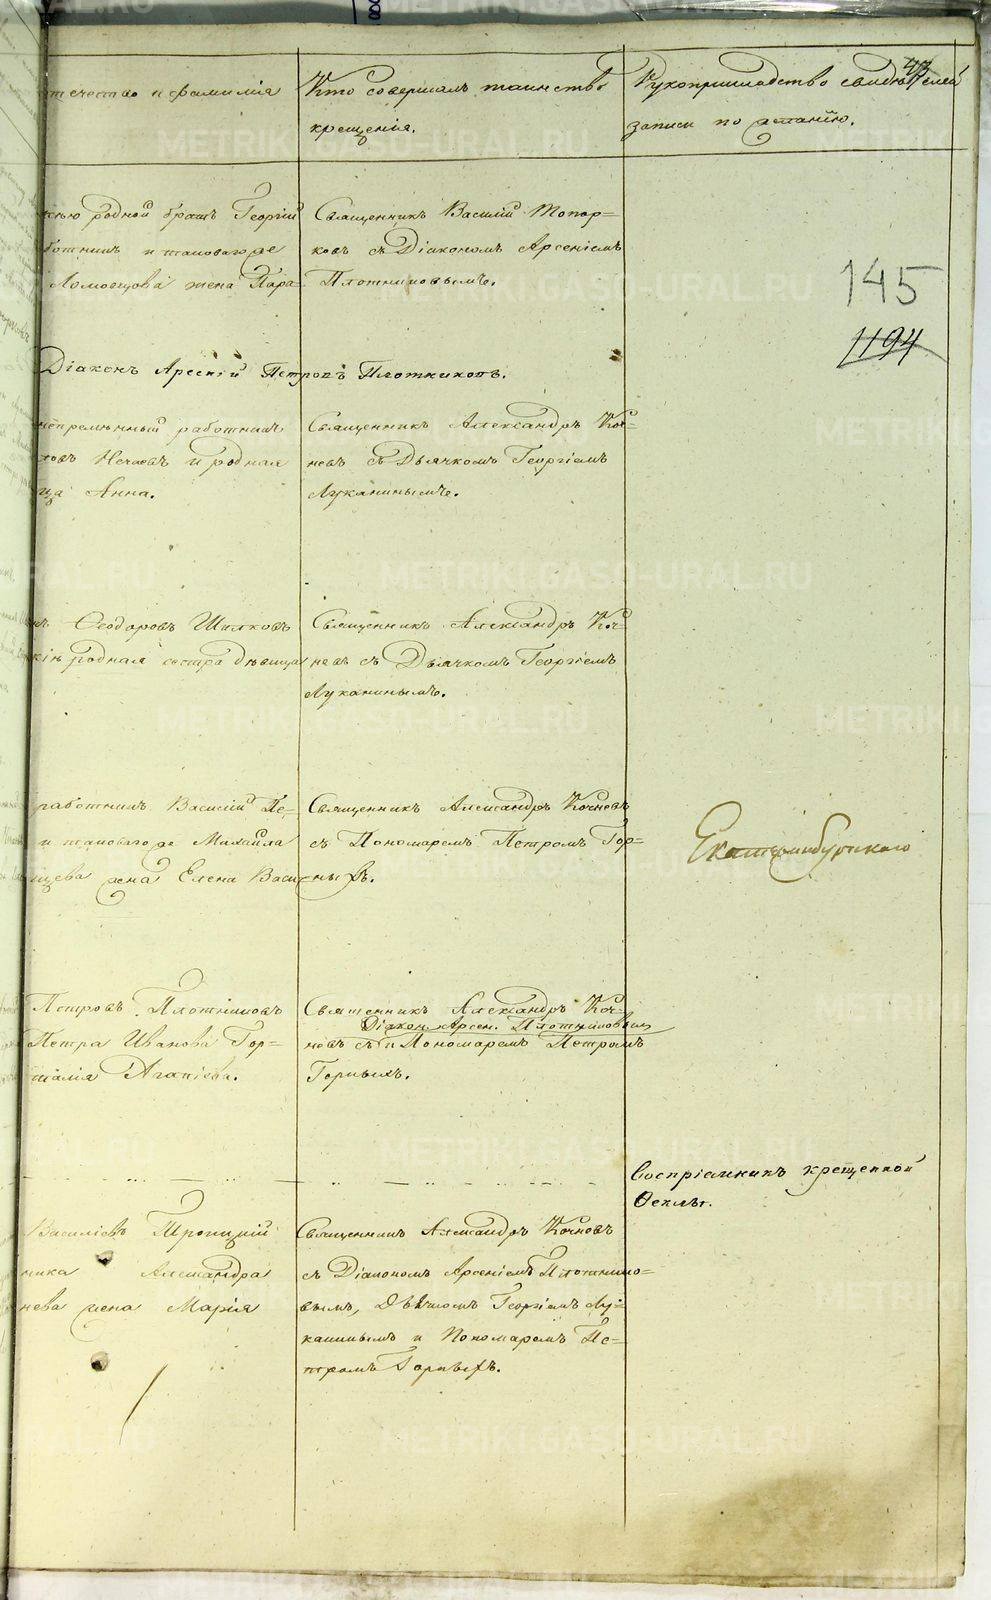 отчество и фамилія
Кто совершалъ таинство
крещенія.
Рукоприкладство свидѣтелей
записи по желанію.
47
145
1194
родной братъ Георгій
ботникъ и таковаго же
Ломовцова жена Пара-
Священникъ Василій Топор-
ковъ съ Діакономъ Арсеніемъ
Плотниковымъ.
Діаконъ Арсеній Петровъ Плотниковъ.
непремѣнный работникъ
Нечаевъ и родная
ца Анна.
Священникъ Александръ Коч-
невъ съ Дьячкомъ Георгіемъ
Луканинымъ.
Ѳеодоровъ Шилковъ
родная сестра дѣвица
Священникъ Александръ Коч-
невъ съ Дьячкомъ Георгіемъ
Луканинымъ.
работникъ Василій Пе-
и таковаго же Михаила
жена Елена Васи
Священникъ Александръ Кочневъ
съ Пономаремъ Петромъ Гор-
ныхъ.
Екатеринбургскаго
Петровъ Плотниковъ
Петра Иванова Гор-
талія Агапіева.
Священникъ Александръ Коч-
Діакон. Арсен. Плотниковым
невъ съ и Пономаремъ Петромъ
Горныхъ.
Воспріемникъ крещенной
Ѳеклы.
Василіевъ Троицкій
ника Александра
нева жена Марія
Священникъ Александръ Кочневъ
съ Діакономъ Арсеніемъ Плотнико-
вымъ, Дьячкомъ Георгіемъ Лу-
канинымъ и Пономаремъ Пе-
тромъ Горныхъ.
METRIKI.GASO-URAL.RU